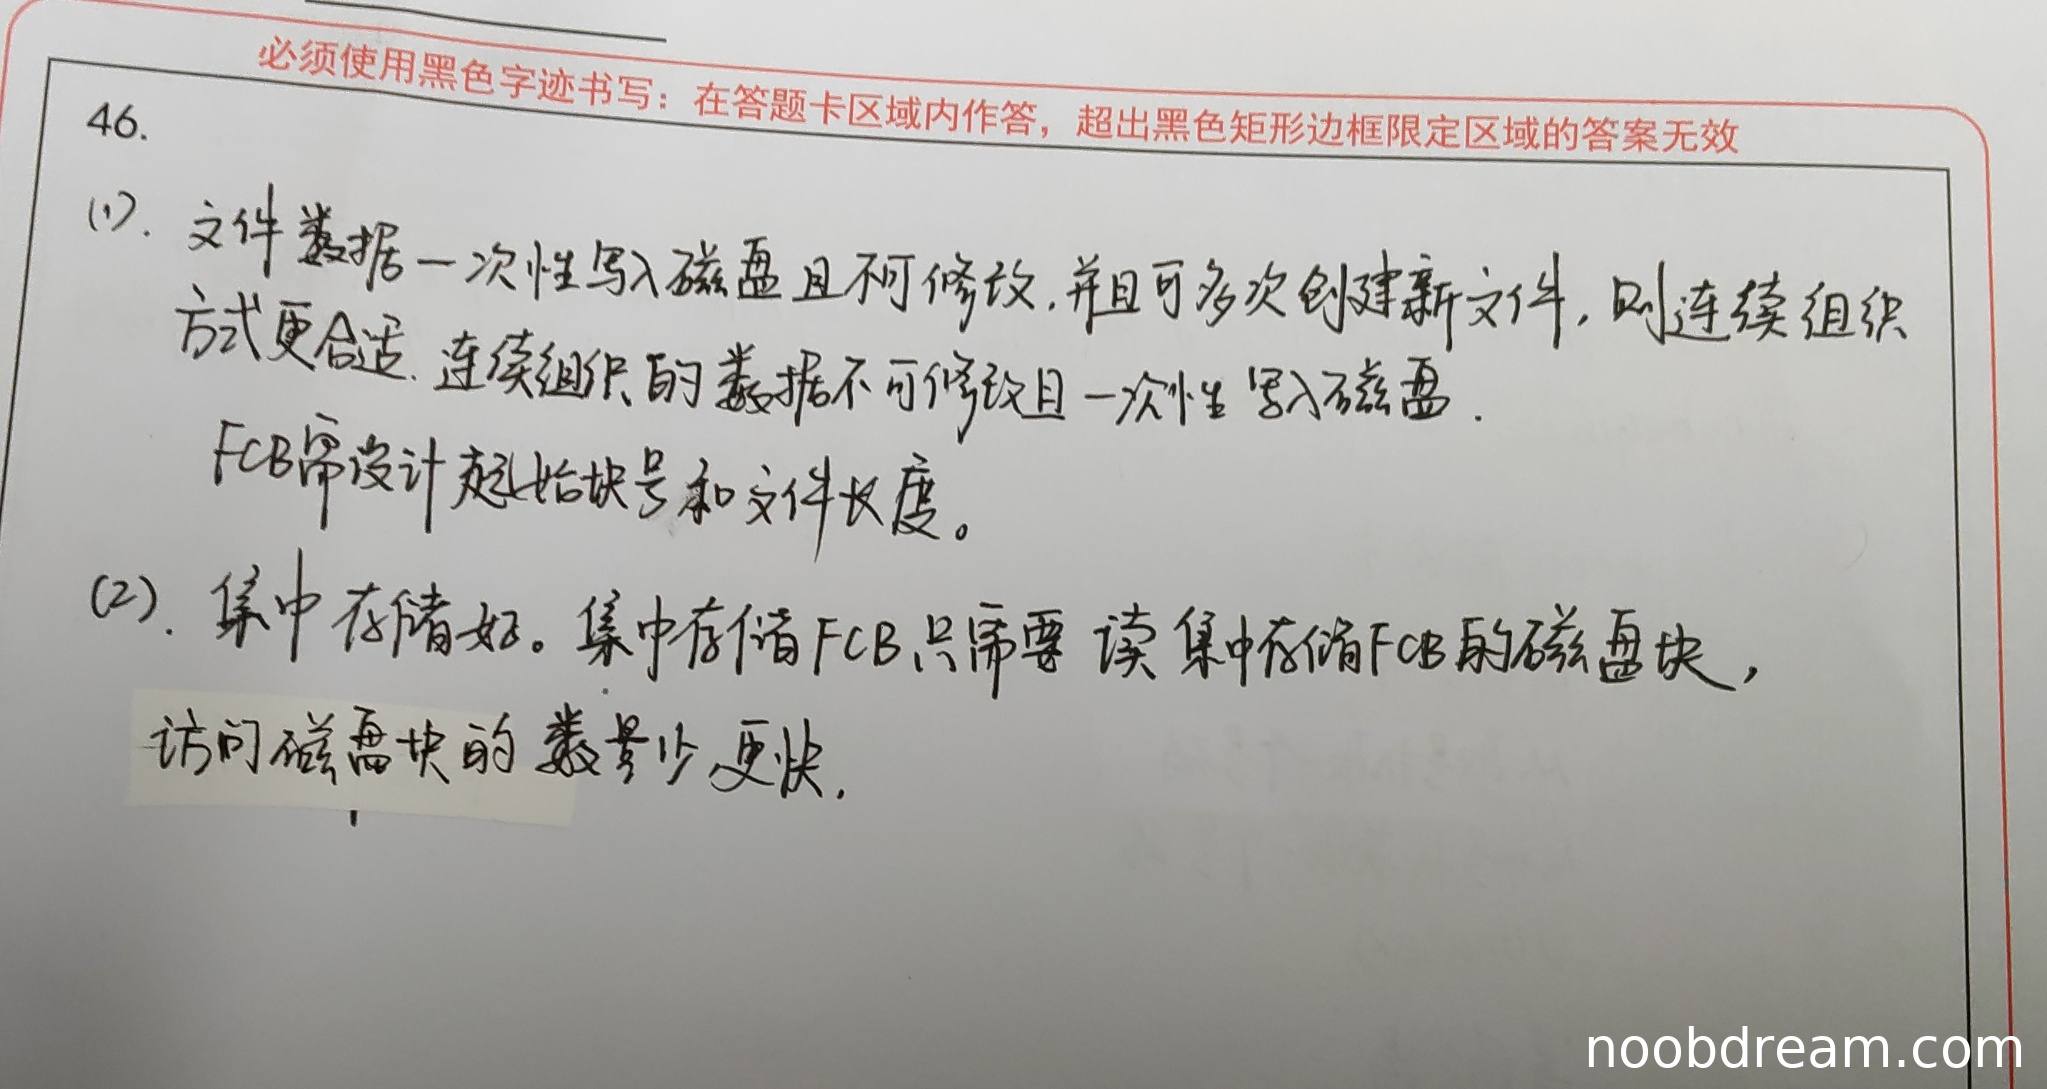 必须使用黑色字迹书写：在答题卡区域内作答，超出黑色矩形边框限定区域的答案无效
46.
(1). 文件数据一次性写入磁盘且不可修改.并且可多次创建新文件，则连续组织
方式更合适.连续组织的数据不可修改且一次性写入磁盘.
FCB需设计起始块号和文件长度。
(2). 集中存储好。集中存储FCB只需要读集中存储FCB的磁盘块，
访问磁盘块的数量少更快.
noobdream.com